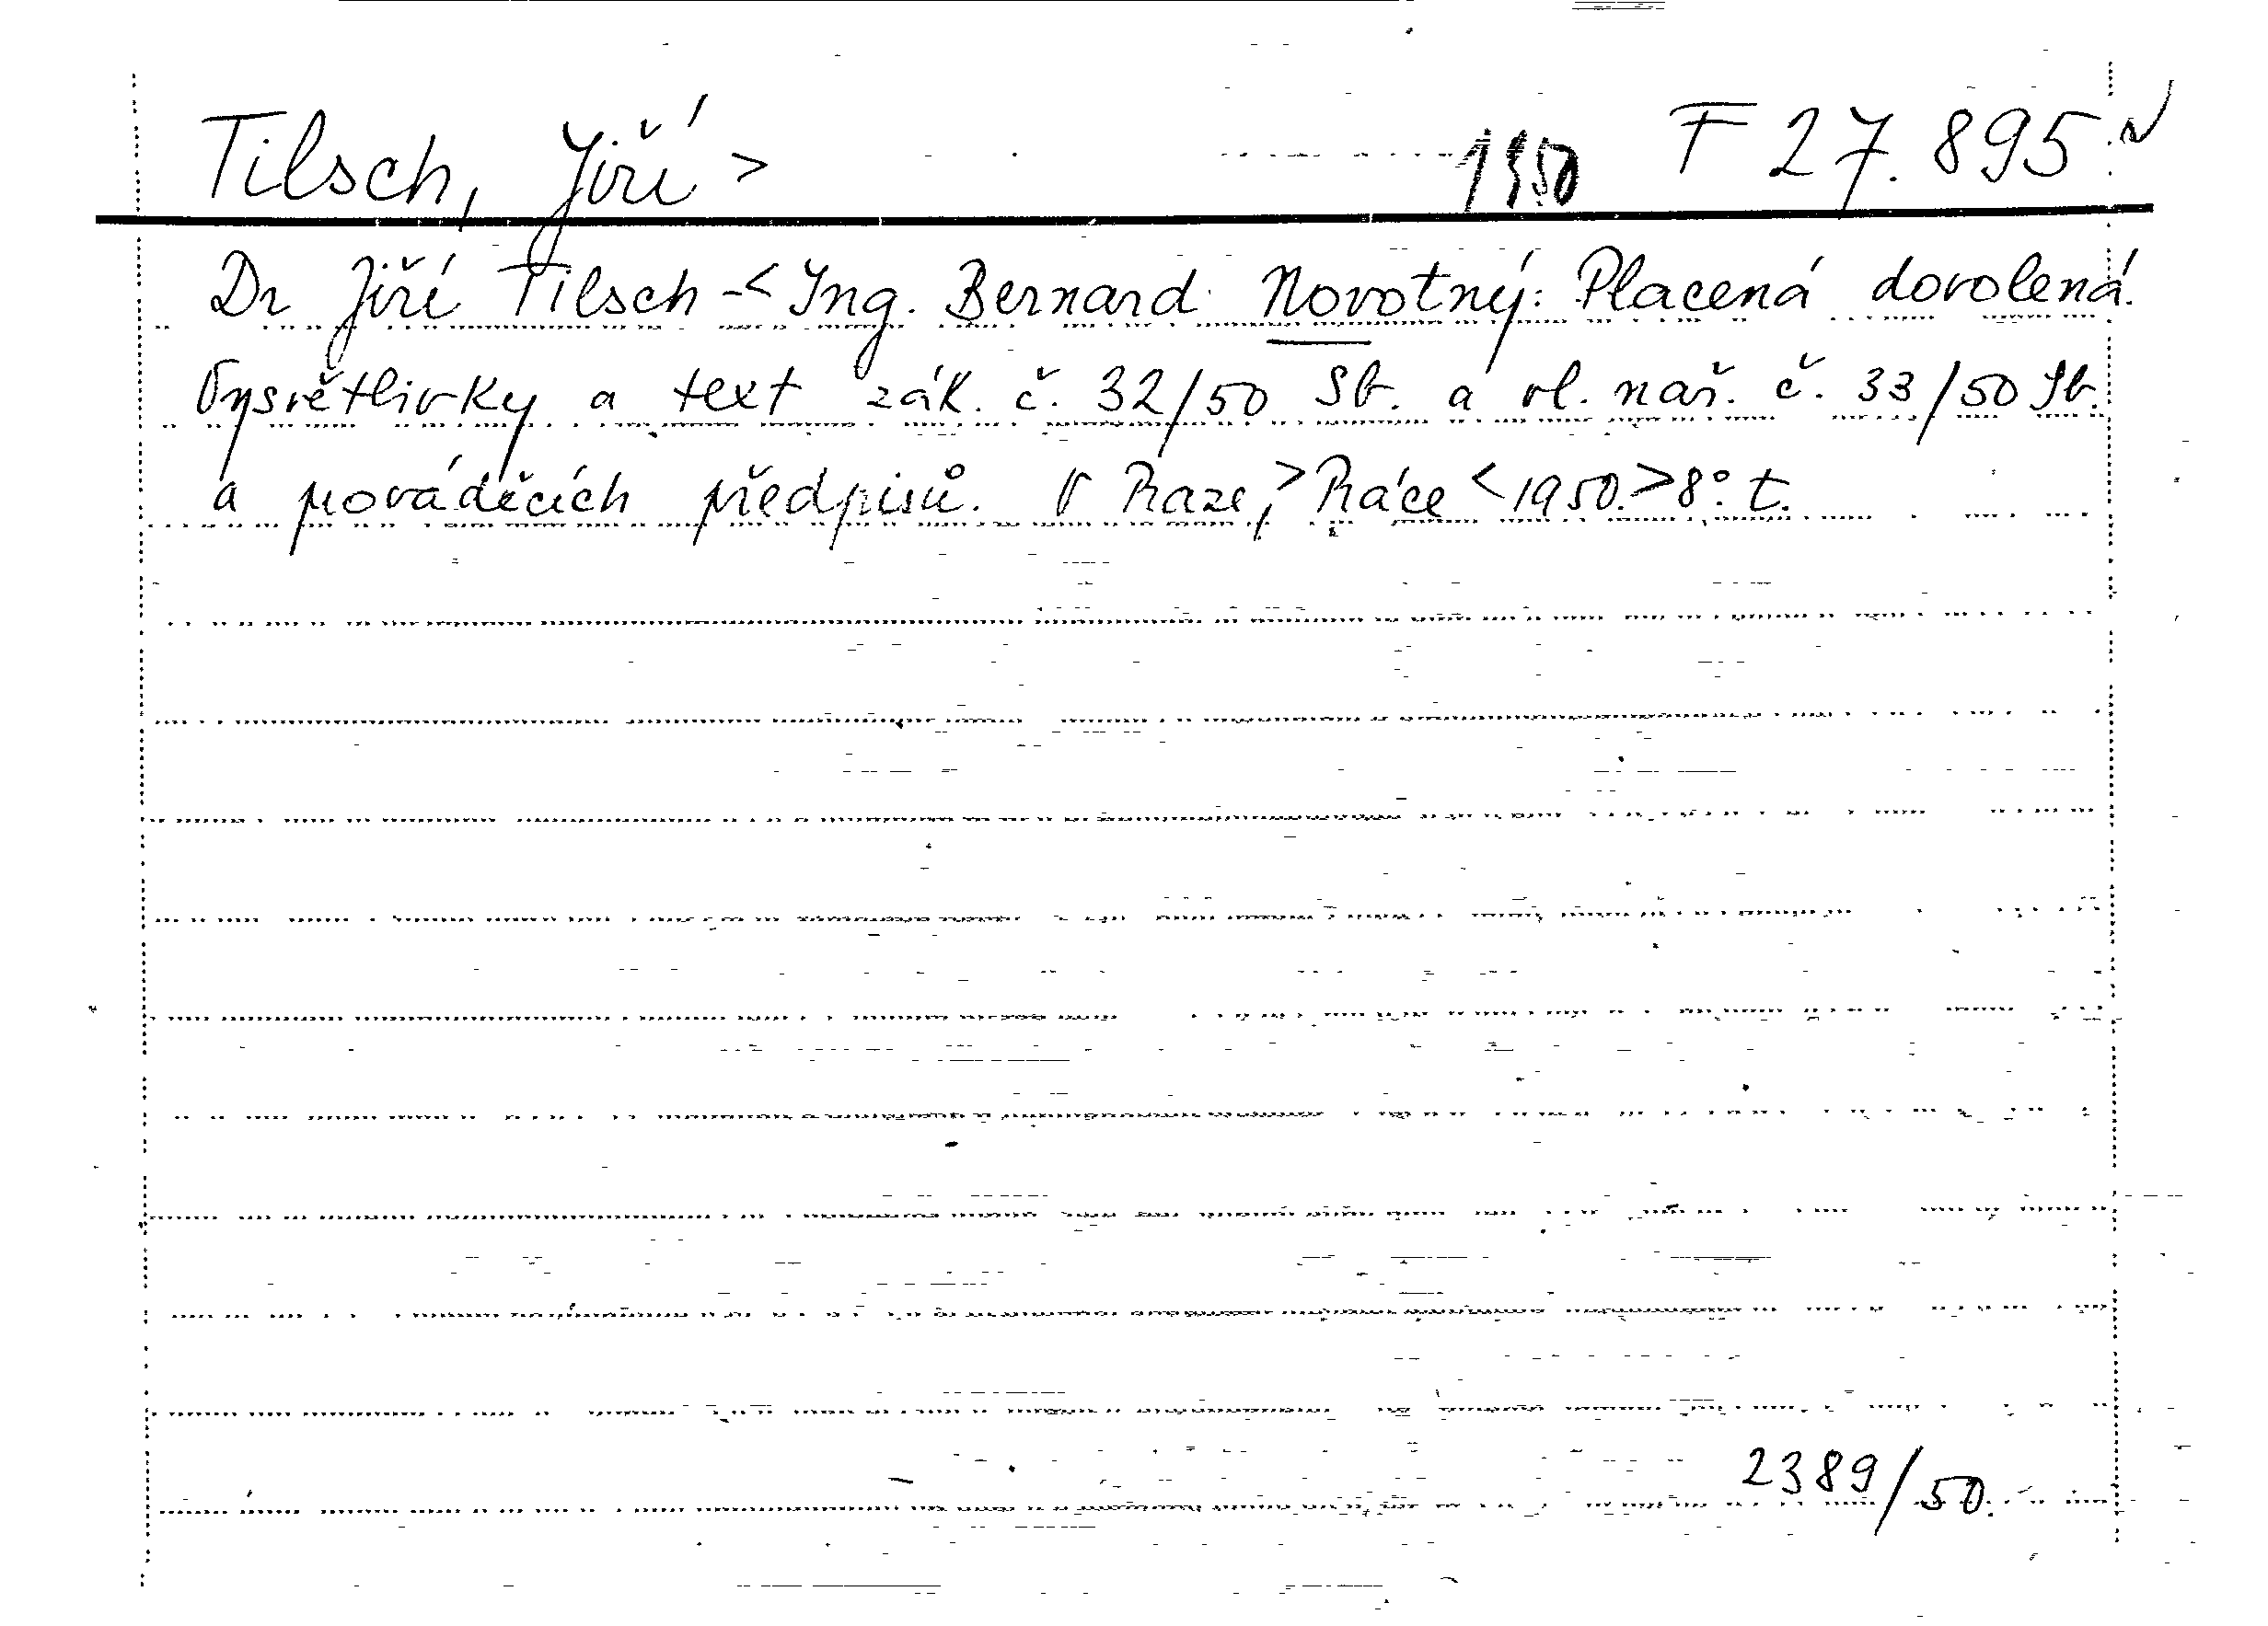 Tilsch, Jiří > 1950 F 27.895
Dr Jiří Tilsch -< Ing. Bernard Novotný: Placená dovolená.
Vysvětlivky a text zák. č. 32/50 Sb. a vl. nař. č. 33/50 Sb.
a prováděcích předpisů. V Praze, > Práce < 1950. > 8° t.
2389/50.